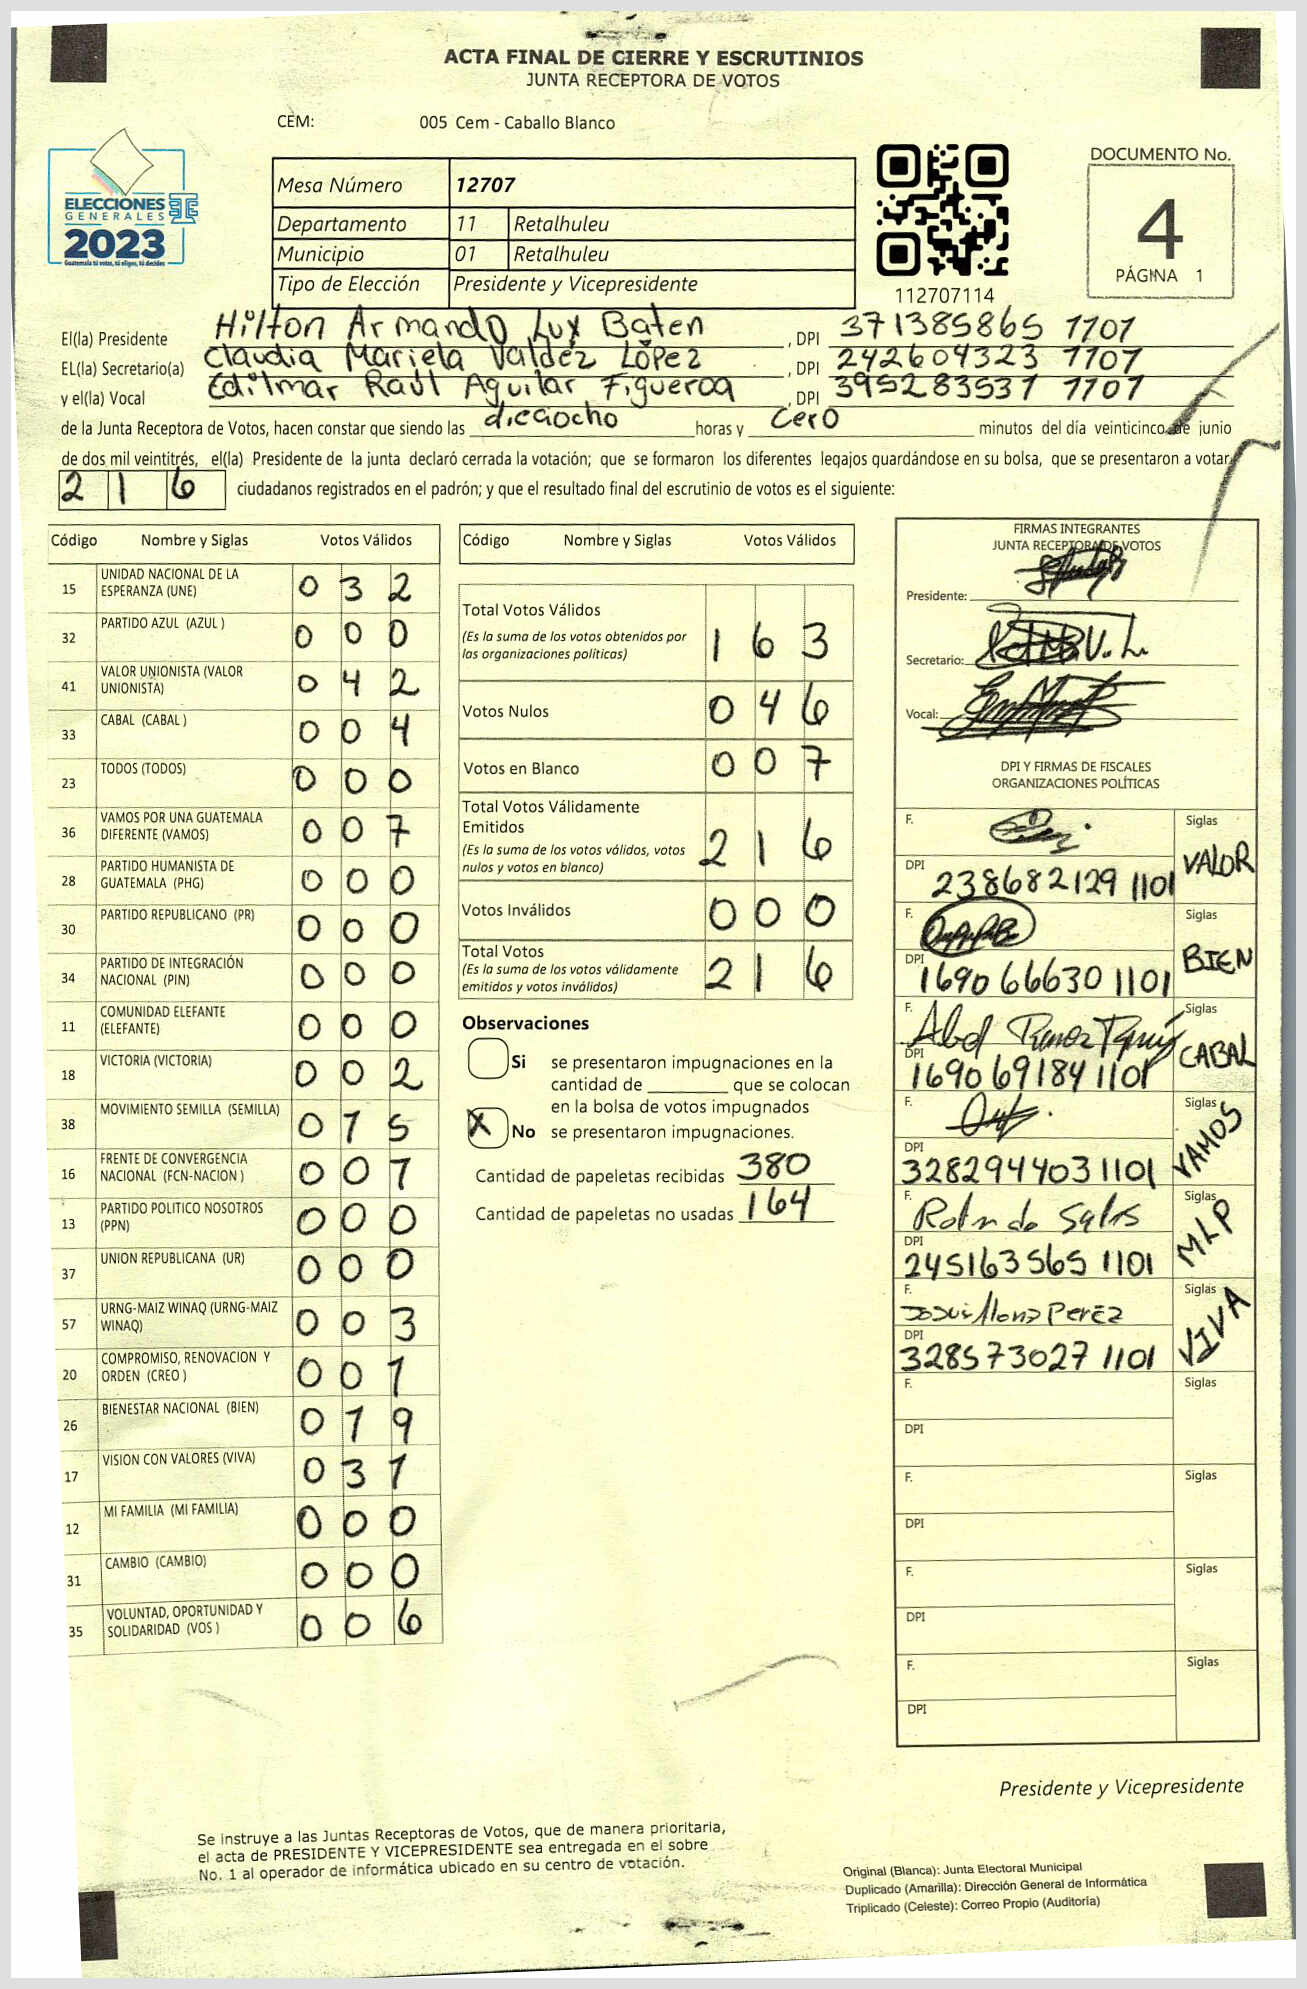 ACTA FINAL DE CIERRE Y ESCRUTINIOS
JUNTA RECEPTORA DE VOTOS
CEM: 005 Cem - Caballo Blanco
ELECCIONES
GENERALES
2023
Guatemala tú votas, tú eliges, tú decides
Mesa Número 12707
Departamento 11 Retalhuleu
Municipio 01 Retalhuleu
Tipo de Elección Presidente y Vicepresidente
112707114
DOCUMENTO No.
4
PÁGINA 1
El(la) Presidente Hilton Armando Lux Baten , DPI 371385865 1101
EL(la) Secretario(a) Claudia Mariela Valdéz López , DPI 242604323 1107
y el(la) Vocal Editmar Raúl Aguilar Figueroa , DPI 395283531 1101
de la Junta Receptora de Votos, hacen constar que siendo las dieciocho horas y cero minutos del día veinticinco de junio
de dos mil veintitrés, el(la) Presidente de la junta declaró cerrada la votación; que se formaron los diferentes legajos guardándose en su bolsa, que se presentaron a votar
216 ciudadanos registrados en el padrón; y que el resultado final del escrutinio de votos es el siguiente:
Código Nombre y Siglas Votos Válidos
15 UNIDAD NACIONAL DE LA ESPERANZA (UNE) 0 3 2
32 PARTIDO AZUL (AZUL ) 0 0 0
41 VALOR UNIONISTA (VALOR UNIONISTA) 0 4 2
33 CABAL (CABAL ) 0 0 4
23 TODOS (TODOS) 0 0 0
36 VAMOS POR UNA GUATEMALA DIFERENTE (VAMOS) 0 0 7
28 PARTIDO HUMANISTA DE GUATEMALA (PHG) 0 0 0
30 PARTIDO REPUBLICANO (PR) 0 0 0
34 PARTIDO DE INTEGRACIÓN NACIONAL (PIN) 0 0 0
11 COMUNIDAD ELEFANTE (ELEFANTE) 0 0 0
18 VICTORIA (VICTORIA) 0 0 2
38 MOVIMIENTO SEMILLA (SEMILLA) 0 1 5
16 FRENTE DE CONVERGENCIA NACIONAL (FCN-NACION ) 0 0 1
13 PARTIDO POLITICO NOSOTROS (PPN) 0 0 0
37 UNION REPUBLICANA (UR) 0 0 0
57 URNG-MAIZ WINAQ (URNG-MAIZ WINAQ) 0 0 3
20 COMPROMISO, RENOVACION Y ORDEN (CREO ) 0 0 1
26 BIENESTAR NACIONAL (BIEN) 0 1 9
17 VISION CON VALORES (VIVA) 0 3 1
12 MI FAMILIA (MI FAMILIA) 0 0 0
31 CAMBIO (CAMBIO) 0 0 0
35 VOLUNTAD, OPORTUNIDAD Y SOLIDARIDAD (VOS ) 0 0 6
Código Nombre y Siglas Votos Válidos
Total Votos Válidos 1 6 3
(Es la suma de los votos obtenidos por
las organizaciones políticas)
Votos Nulos 0 4 6
Votos en Blanco 0 0 7
Total Votos Válidamente
Emitidos 2 1 6
(Es la suma de los votos válidos, votos
nulos y votos en blanco)
Votos Inválidos 0 0 0
Total Votos 2 1 6
(Es la suma de los votos válidamente
emitidos y votos inválidos)
Observaciones
Si se presentaron impugnaciones en la
cantidad de ________ que se colocan
en la bolsa de votos impugnados
X No se presentaron impugnaciones.
Cantidad de papeletas recibidas 380
Cantidad de papeletas no usadas 164
FIRMAS INTEGRANTES
JUNTA RECEPTORA DE VOTOS
Presidente:
Secretario:
Vocal:
DPI Y FIRMAS DE FISCALES
ORGANIZACIONES POLÍTICAS
F. Siglas VALOR
DPI 238682129 1101
F. Siglas BIEN
DPI 1690 66630 1101
F. Siglas CABAL
DPI 1690 69184 1101
F. Siglas VAMOS
DPI 328294403 1101
F. Siglas MLP
DPI 245163565 1101
F. Perez Siglas VIVA
DPI 328573027 1101
F. Siglas
DPI
F. Siglas
DPI
F. Siglas
DPI
F. Siglas
DPI
Presidente y Vicepresidente
Se instruye a las Juntas Receptoras de Votos, que de manera prioritaria,
el acta de PRESIDENTE Y VICEPRESIDENTE sea entregada en el sobre
No. 1 al operador de informática ubicado en su centro de votación.
Original (Blanca): Junta Electoral Municipal
Duplicado (Amarilla): Dirección General de Informática
Triplicado (Celeste): Correo Propio (Auditoría)